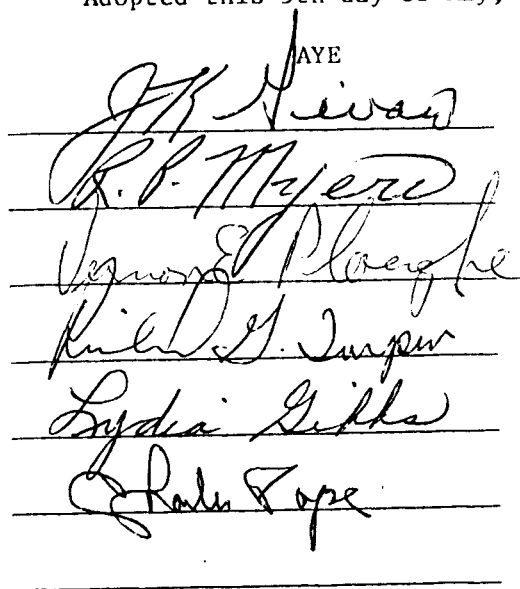 Adopted this 9th day of May,
AYE
J K Givan
R. P. Myers
Vernon E Ploeghe
G. Turpin
Lydia Gibbs
Charles Pope